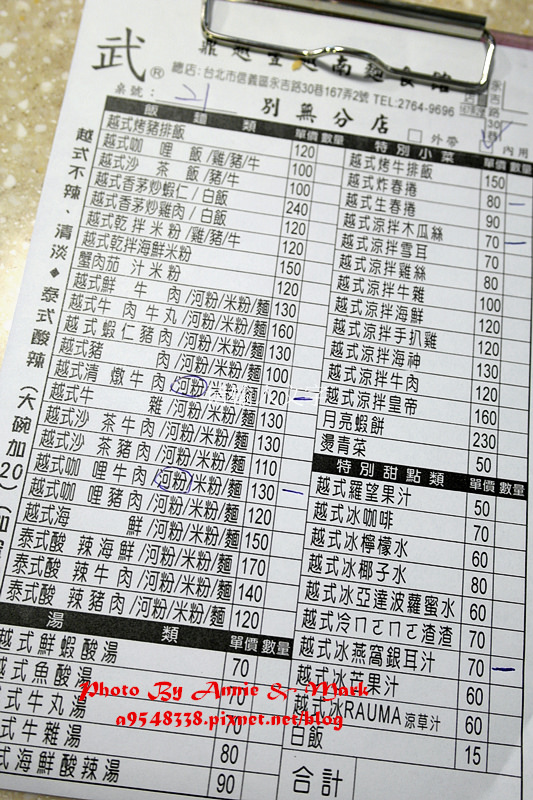 武® 鼎越豐越南麵食館
總店:台北市信義區永吉路30巷167弄2號 TEL:2764-9696
桌號: 21 別無分店
永吉路30巷
外帶 內用
飯麵類 單價 數量
越式烤豬排飯 120
越式咖哩飯/雞/豬/牛 100
越式沙茶飯/豬/牛 100
越式香茅炒蝦仁/白飯 240
越式香茅炒雞肉/白飯 120
越式乾拌米粉/雞/豬/牛 120
越式乾拌海鮮米粉 150
蟹肉茄汁米粉 120
越式鮮牛肉/河粉/米粉/麵 130
越式牛肉牛丸/河粉/米粉/麵 160
越式蝦仁豬肉/河粉/米粉/麵 130
越式豬肉/河粉/米粉/麵 100
越式清燉牛肉/河粉/米粉/麵 120
越式牛雜/河粉/米粉/麵 130
越式沙茶牛肉/河粉/米粉/麵 130
越式沙茶豬肉/河粉/米粉/麵 110
越式咖哩牛肉/河粉/米粉/麵 130
越式咖哩豬肉/河粉/米粉/麵 120
越式海鮮/河粉/米粉/麵 150
泰式酸辣海鮮/河粉/米粉/麵 170
泰式酸辣牛肉/河粉/米粉/麵 140
泰式酸辣豬肉/河粉/米粉/麵 120
湯類 單價 數量
越式鮮蝦酸湯 70
式魚酸湯 70
式牛丸湯 70
式牛雜湯 80
式海鮮酸辣湯 90
越式不辣、清淡◆泰式酸辣(大碗加20)
特別小菜 單價 數量
越式烤牛排飯 150
越式炸春捲 80
越式生春捲 90
越式涼拌木瓜絲 70
越式涼拌雪耳 70
越式涼拌雞絲 80
越式涼拌牛雜 100
越式涼拌海鮮 120
越式涼拌手扒雞 120
越式涼拌海神 130
越式涼拌牛肉 120
越式涼拌皇帝 160
月亮蝦餅 230
燙青菜 50
特別甜點類 單價 數量
越式羅望果汁 50
越式冰咖啡 70
越式冰檸檬水 60
越式冰椰子水 80
越式冰亞達波蘿蜜水 60
越式冷ㄇㄛㄇㄛ渣渣 70
越式冰燕窩銀耳汁 70
越式冰芒果汁 60
越式冰RAUMA涼草汁 60
白飯 15
合計
Photo By Annie & Mark
a9548338.pixnet.net/blog